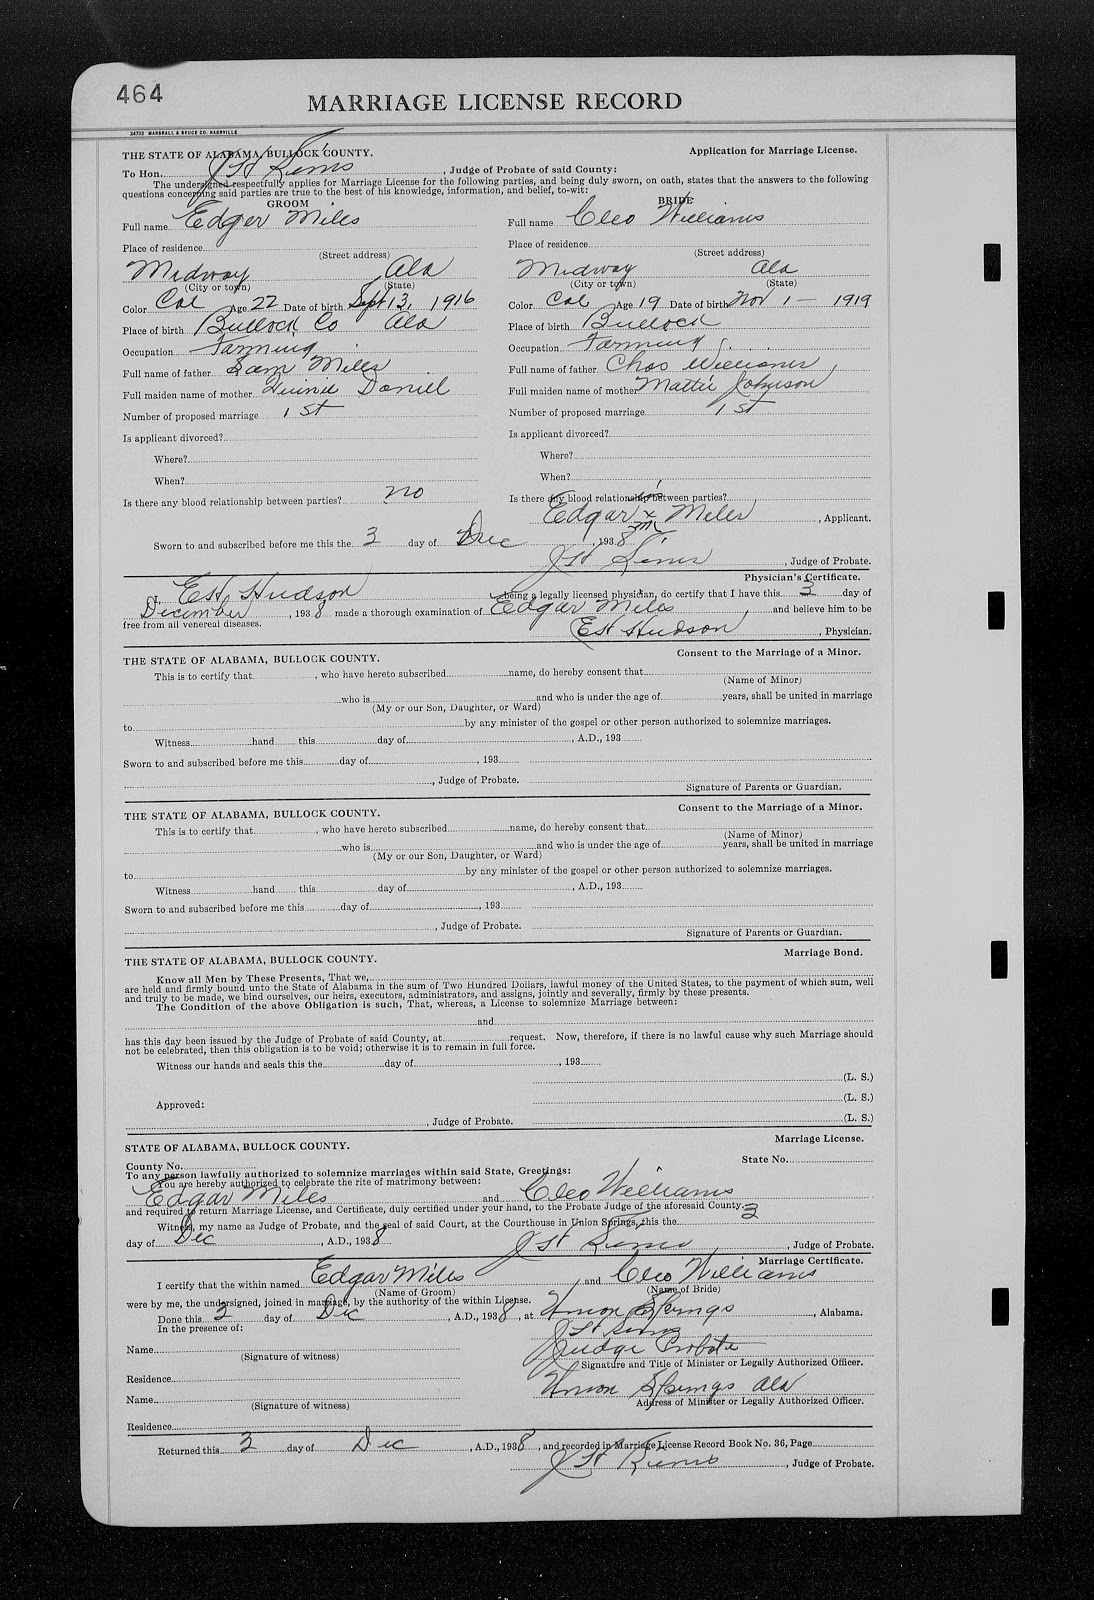 464
MARRIAGE LICENSE RECORD
24703 MARSHALL & BRUCE CO. NASHVILLE
THE STATE OF ALABAMA, BULLOCK COUNTY. Application for Marriage License.
To Hon. , Judge of Probate of said County:
The undersigned respectfully applies for Marriage License for the following parties, and being duly sworn, on oath, states that the answers to the following
questions concerning said parties are true to the best of his knowledge, information, and belief, to-wit:
GROOM BRIDE
Full name Edger Miles Full name Cleo Williams
Place of residence Place of residence
(Street address) (Street address)
Midway Ala Midway Ala
(City or town) (State) (City or town) (State)
Color Col Age 22 Date of birth Sept 13, 1916 Color Col Age 19 Date of birth Nov 1 - 1919
Place of birth Bullock Co Ala Place of birth Bullock
Occupation Farming Occupation Farming
Full name of father Sam Miles Full name of father Chas Williams
Full maiden name of mother Daniel Full maiden name of mother Mattie Johnson
Number of proposed marriage 1st Number of proposed marriage 1st
Is applicant divorced? Is applicant divorced?
Where? Where?
When? When?
Is there any blood relationship between parties? no Is there any blood relationship between parties?
Edgar x Miles , Applicant.
Sworn to and subscribed before me this the 3 day of Dec , 1938
, Judge of Probate.
Physician's Certificate.
I, Hudson being a legally licensed physician, do certify that I have this 3 day of
December , 1938 made a thorough examination of Edgar Miles , and believe him to be
free from all venereal diseases. Hudson , Physician.
THE STATE OF ALABAMA, BULLOCK COUNTY. Consent to the Marriage of a Minor.
This is to certify that , who have hereto subscribed name, do hereby consent that
(Name of Minor)
who is and who is under the age of years, shall be united in marriage
(My or our Son, Daughter, or Ward)
to by any minister of the gospel or other person authorized to solemnize marriages.
Witness hand this day of , A.D., 193
Sworn to and subscribed before me this day of , 193
, Judge of Probate. Signature of Parents or Guardian.
THE STATE OF ALABAMA, BULLOCK COUNTY. Consent to the Marriage of a Minor.
This is to certify that , who have hereto subscribed name, do hereby consent that
(Name of Minor)
who is and who is under the age of years, shall be united in marriage
(My or our Son, Daughter, or Ward)
to by any minister of the gospel or other person authorized to solemnize marriages.
Witness hand this day of , A.D., 193
Sworn to and subscribed before me this day of , 193
, Judge of Probate. Signature of Parents or Guardian.
THE STATE OF ALABAMA, BULLOCK COUNTY. Marriage Bond.
Know all Men by These Presents, That we,
are held and firmly bound unto the State of Alabama in the sum of Two Hundred Dollars, lawful money of the United States, to the payment of which sum, well
and truly to be made, we bind ourselves, our heirs, executors, administrators, and assigns, jointly and severally, firmly by these presents.
The Condition of the above Obligation is such, That, whereas, a License to solemnize Marriage between:
and
has this day been issued by the Judge of Probate of said County, at request. Now, therefore, if there is no lawful cause why such Marriage should
not be celebrated, then this obligation is to be void; otherwise it is to remain in full force.
Witness our hands and seals this the day of , 193
(L. S.)
Approved: (L. S.)
, Judge of Probate. (L. S.)
STATE OF ALABAMA, BULLOCK COUNTY. Marriage License.
County No. State No.
To any person lawfully authorized to solemnize marriages within said State, Greetings:
You are hereby authorized to celebrate the rite of matrimony between:
Edgar Miles and Cleo Williams
and required to return Marriage License, and Certificate, duly certified under your hand, to the Probate Judge of the aforesaid County.
Witness, my name as Judge of Probate, and the seal of said Court, at the Courthouse in Union Springs, this the 3
day of Dec , A.D., 1938 , Judge of Probate.
Marriage Certificate.
I certify that the within named Edgar Miles and Cleo Williams
(Name of Groom) (Name of Bride)
were by me, the undersigned, joined in marriage, by the authority of the within License.
Done this 3 day of Dec , A.D., 1938, at Union Springs , Alabama.
In the presence of:
Name Judge Probate
(Signature of witness) Signature and Title of Minister or Legally Authorized Officer.
Residence Union Springs Ala
Name Address of Minister or Legally Authorized Officer.
(Signature of witness)
Residence
Returned this 3 day of Dec , A.D., 1938, and recorded in Marriage License Record Book No. 36, Page
, Judge of Probate.